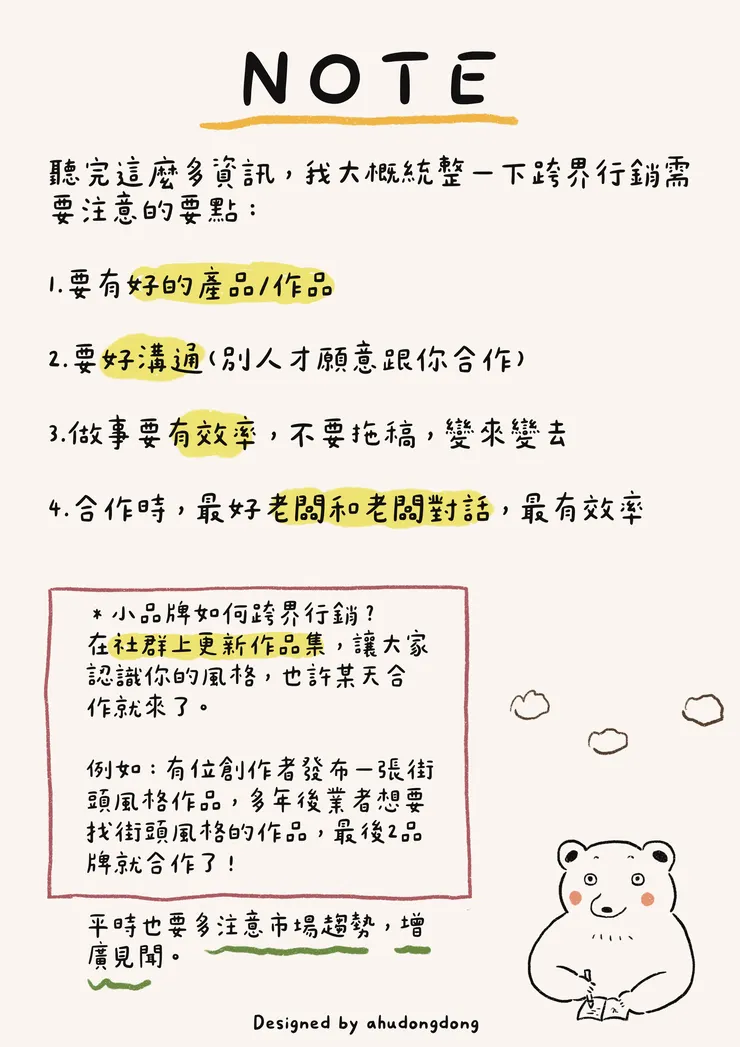 NOTE
聽完這麼多資訊，我大概統整一下跨界行銷需
要注意的要點：
1.要有好的產品/作品
2.要好溝通(別人才願意跟你合作)
3.做事要有效率，不要拖稿，變來變去
4.合作時，最好老闆和老闆對話，最有效率
*小品牌如何跨界行銷？
在社群上更新作品集，讓大家
認識你的風格，也許某天合
作就來了。
例如：有位創作者發布一張街
頭風格作品，多年後業者想要
找街頭風格的作品，最後2品
牌就合作了！
平時也要多注意市場趨勢，增
廣見聞。
Designed by ahudongdong